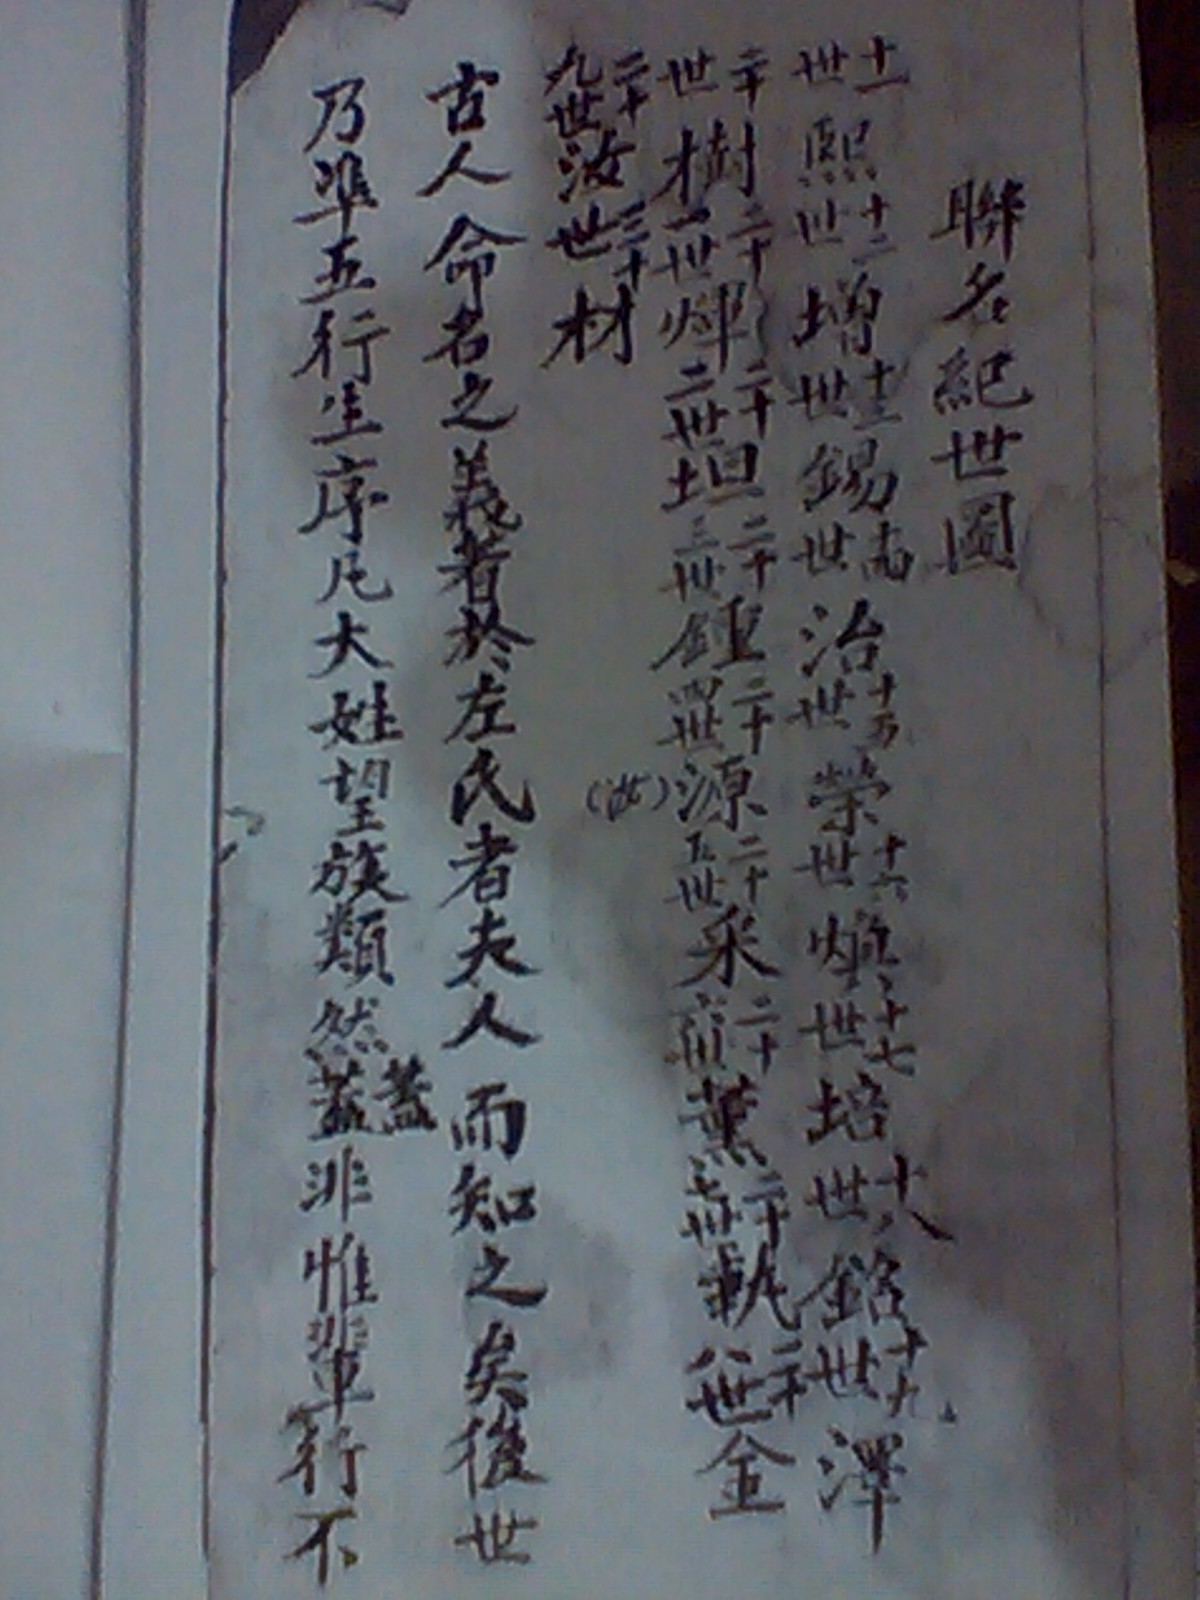 聯名紀世圖
十一世熙十二世增十三世錫十四世治十五世榮十六世十七世培十八世銘十九世澤
二十世樹二十一世煇二十二世坦二十三世鍾二十四世源二十五世采二十六世薰二十七世二十八世金
二十九世汝三十世材
古人命名之義著於左氏者夫人而知之矣後世
乃準五行生序凡大姓望族類然蓋蓋非惟輩行不